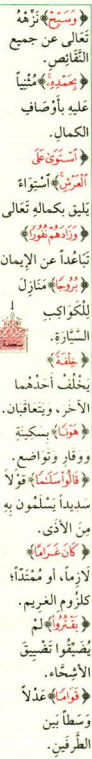 ﴿ وَسَبِّحْ ﴾ نَزِّهْهُ
تَعَالَى عن جميعِ
النَّقَائِصِ.
﴿ بِحَمْدِهِ ﴾ مُثْنِياً
عَليهِ بأَوْصَافِ
الكمالِ.
﴿ ٱسْتَوَىٰ عَلَى
ٱلْعَرْشِ ﴾ اسْتِوَاءً
يَليق بكمالِهِ تَعَالَى
﴿ وَزَادَهُمْ نُفُورًا ﴾
تَبَاعُداً عن الإيمانِ
﴿ بُرُوجًا ﴾ مَنَازِلَ
لِلْكَوَاكِبِ
السَّيَّارَةِ.
سجدة
﴿ خِلْفَةً ﴾
يَخْلُفُ أحدُهُما
الآخرَ، ويَتعاقَبان.
﴿ هَوْنًا ﴾ بِسكينةٍ
ووقارٍ وتواضعٍ.
﴿ قَالُوا۟ سَلَٰمًا ﴾ قَوْلاً
سَديداً يَسْلَمُون بِهِ
مِنَ الأذى.
﴿ كَانَ غَرَامًا ﴾
لَازِماً، أو مُمْتَدّاً؛
كلزُومِ الغرِيمِ.
﴿ يَقْتُرُوا۟ ﴾ لمْ
يُضَيِّقُوا تَضْييقَ
الأشِحَّاء.
﴿ قَوَامًا ﴾ عَدْلاً
وَسَطاً بَين
الطَّرفَين.